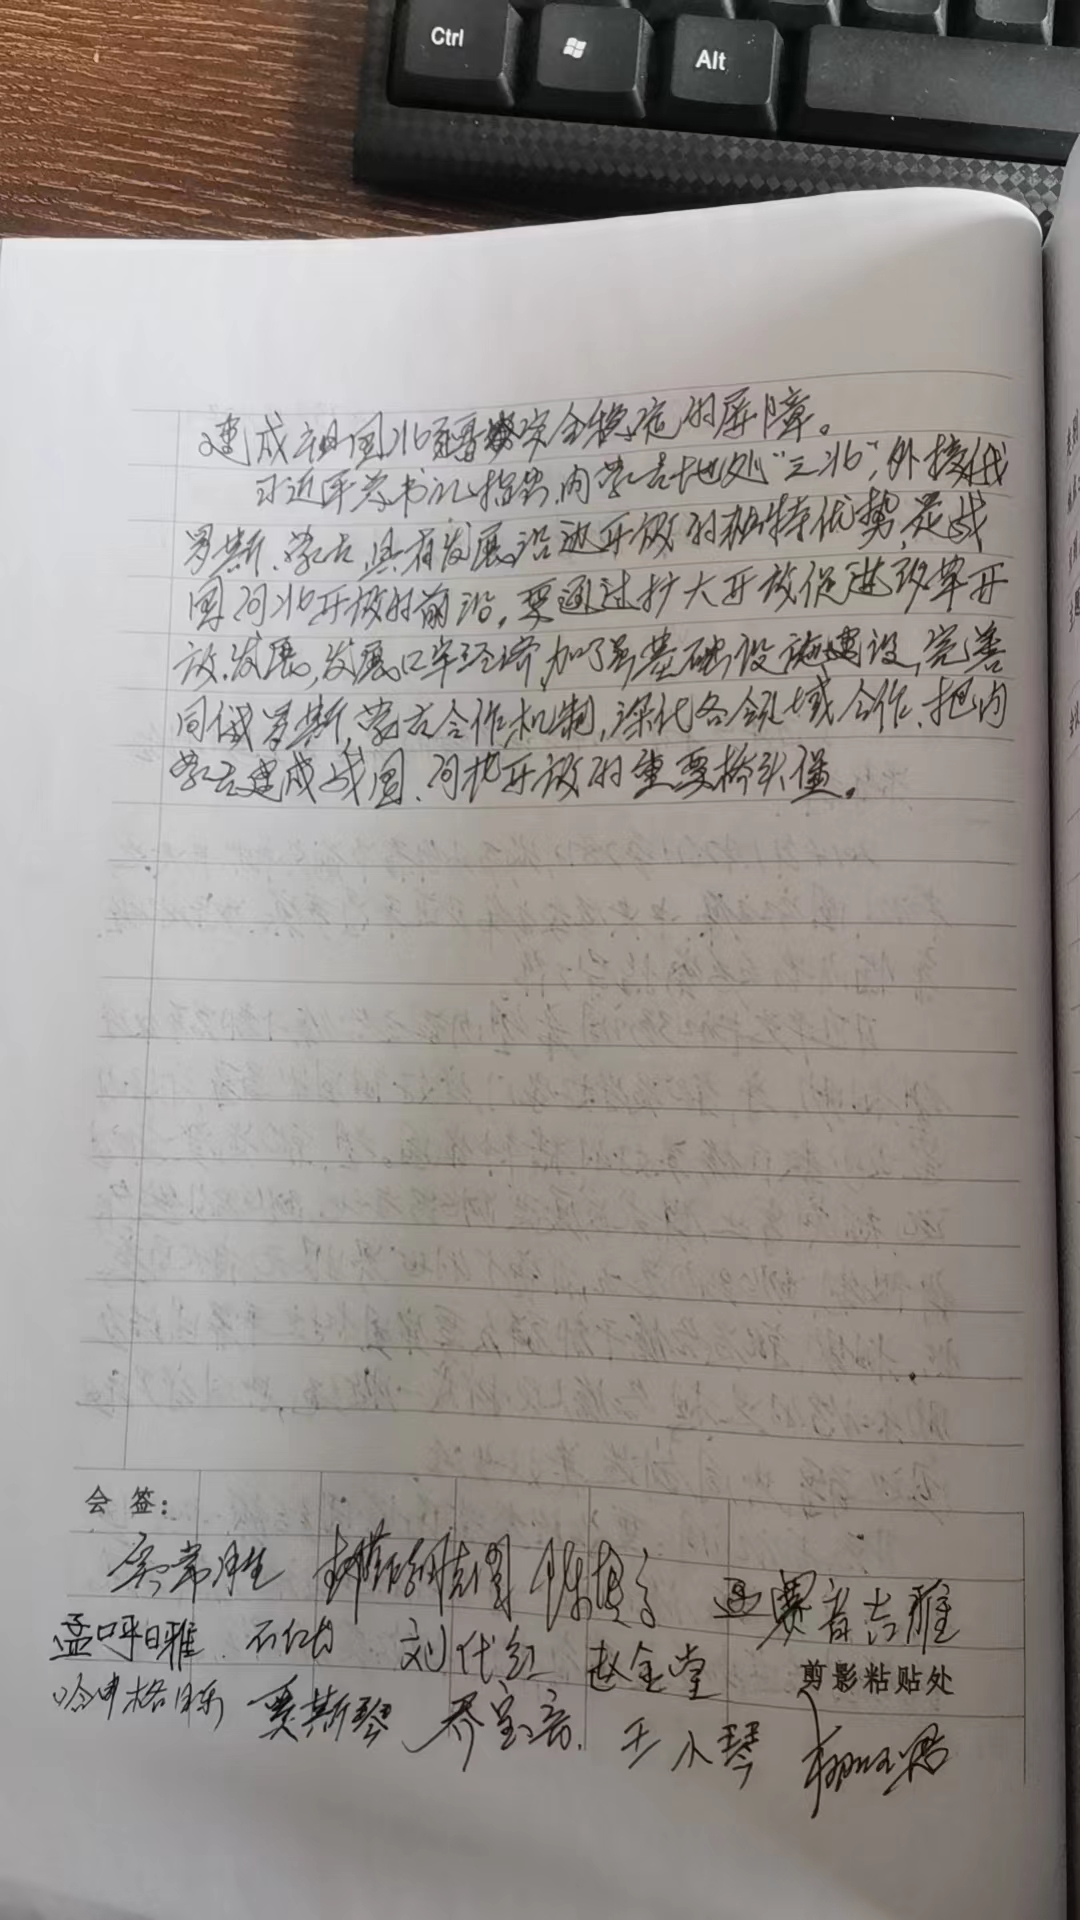 Ctrl
Alt
建成祖国北疆安全稳定的屏障。
习近平总书记指出,内蒙古地处"三北",外接俄
罗斯、蒙古,具有发展沿边开放的独特优势,是我
国向北开放的前沿,要通过扩大开放促进改革开
放.发展,发展口岸经济,加强基础设施建设,完善
同俄罗斯,蒙古合作机制,深化各领域合作,把内
蒙古建成我国、向北开放的重要桥头堡。
会 签:
常胜
赛音吉雅
孟呼日雅 刘代红 赵金堂
剪影粘贴处
哈申格日乐 莫斯琴 乔宝音 王小琴